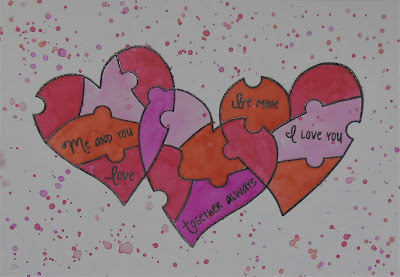 Be mine
Me and you
I Love you
love
together always